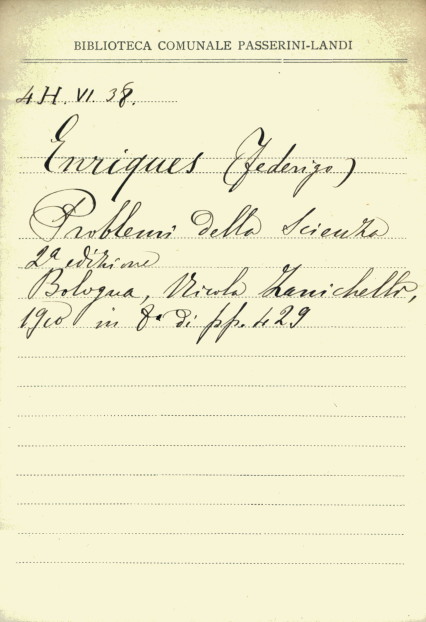 BIBLIOTECA COMUNALE PASSERINI-LANDI
4H. VI. 38.
Enriques (Federigo)
Problemi della Scienza
2ª edizione
Bologna, Nicola Zanichelli,
1910 in 8.º di pp. 429